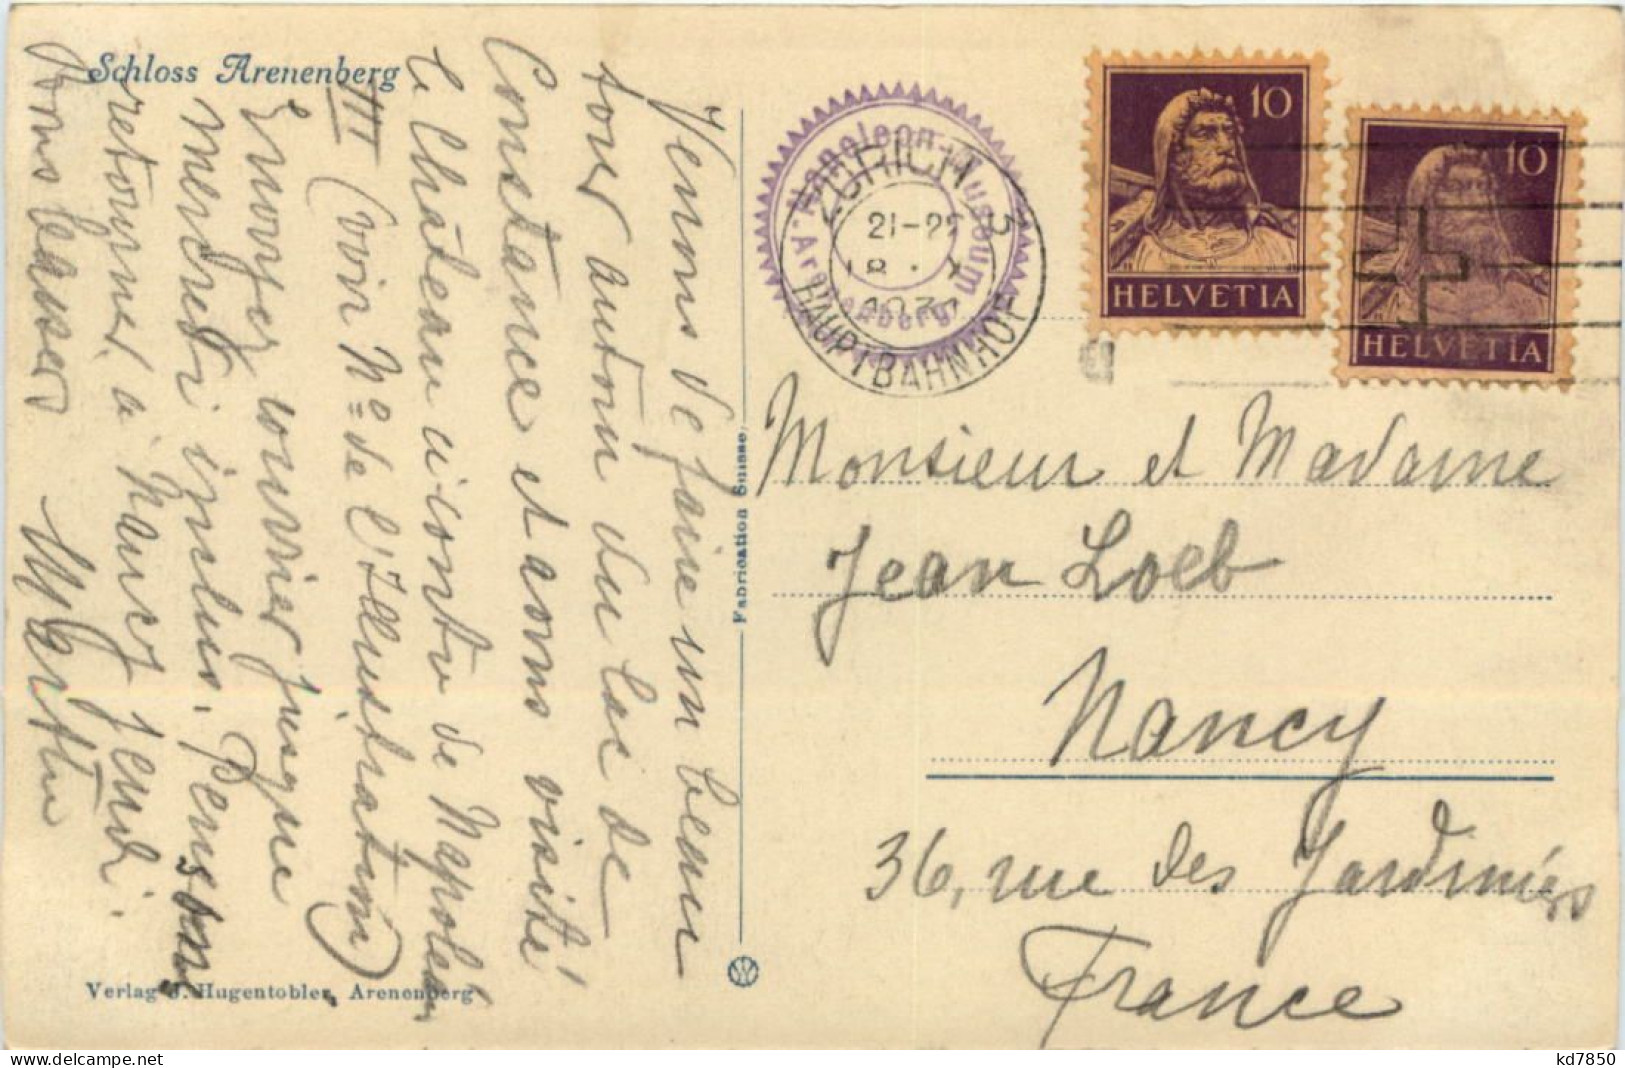 Schloss Arenenberg
Venons de faire un beau
tour autour du lac de
Constance et avons visité
le Château ci-contre de Napoléon
III (voir Nº de l'Illustration)
Envoyez courrier jusque
mercredi inclus. Pensons
retourner à Nancy jeudi.
Bons baisers
Verlag J. Hugentobler, Arenenberg
Fabrication Suisse.
Napoleon-Museum
Arenenberg
ZÜRICH 3
21-22
18. X
HAUPTBAHNHOF
10
HELVETIA
10
HELVETIA
Monsieur et Madame
Jean Loeb
Nancy
36, rue des Jardiniers
France
kd7850